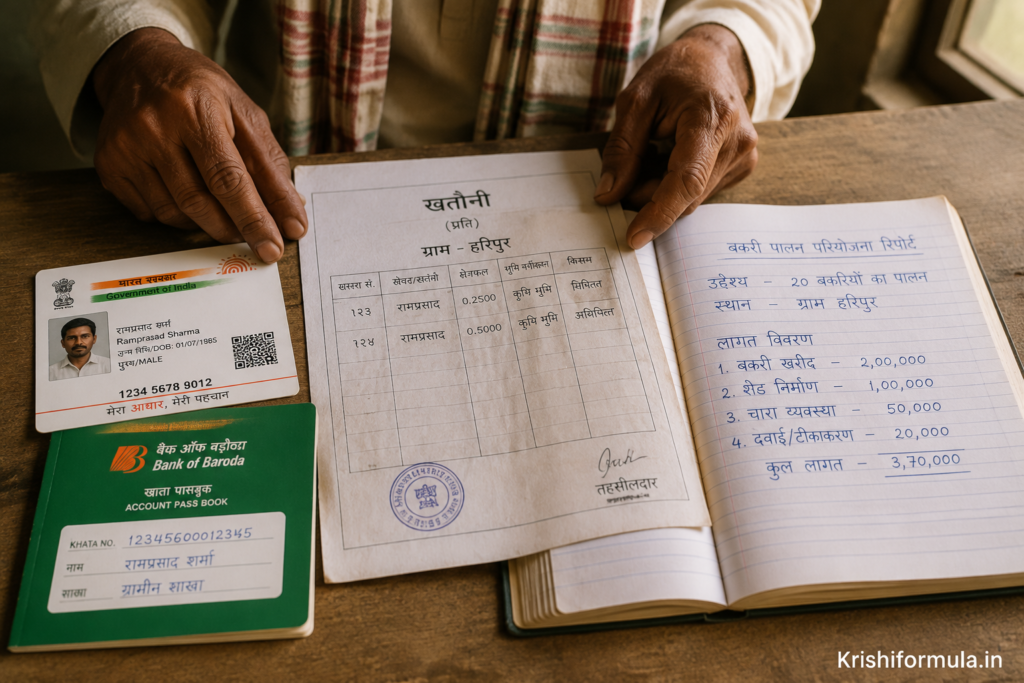 भारत सरकार
Government of India
रामप्रसाद शर्मा
Ramprasad Sharma
जन्म तिथि/DOB: 01/07/1985
पुरुष/MALE
1234 5678 9012
मेरा आधार, मेरी पहचान
बैंक ऑफ बड़ौदा
Bank of Baroda
खाता पासबुक
ACCOUNT PASS BOOK
KHATA NO. 12345600012345
नाम रामप्रसाद शर्मा
शाखा ग्रामीन शाखा
खतौनी
(प्रति)
ग्राम - हरिपुर
खसरा सं. क्षेत्रफल भूमि किसम
१२३ रामप्रसाद 0.2500 कृमि भुमि
१२४ रामप्रसाद 0.5000 कृमि भुमि
तहसीलदार
बकरी पालन परियोजना रिपोर्ट
उद्देश्य - 20 बकरियों का पालन
स्थान - ग्राम हरिपुर
लागत विवरण
1. बकरी खरीद - 2,00,000
2. शेड निर्माण - 1,00,000
3. चारा व्यवस्था - 50,000
4. दवाई/टीकाकरण - 20,000
कुल लागत - 3,70,000
Krishiformula.in